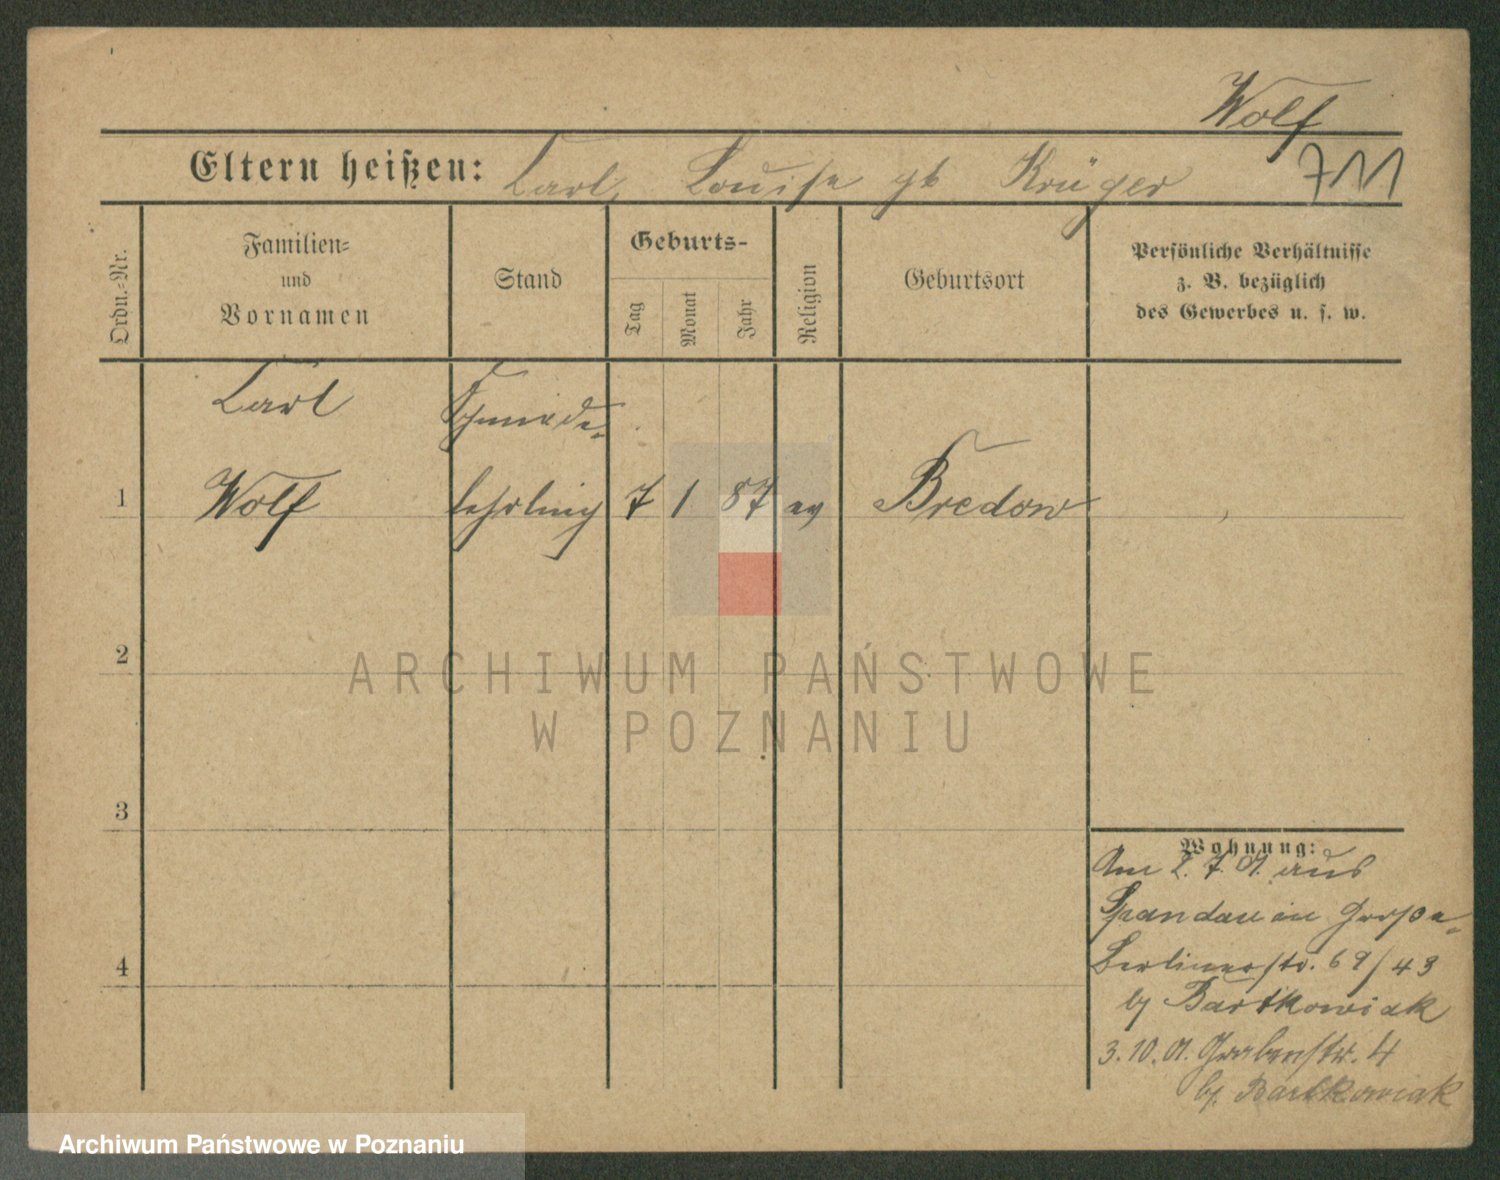 Wolf
711
Eltern heißen: Carl, Louise gb Krüger
Ordn.=Nr.
Familien=
und
Vornamen
Stand
Geburts-
Tag
Monat
Jahr
Religion
Geburtsort
Persönliche Verhältnisse
z. B. bezüglich
des Gewerbes u. s. w.
Carl Schmiede=
1 Wolf lehrling 7 1 87 ev Bredow
2
3
4
Wohnung:
Am 2. 7. 01. aus
Spandau in Große=
Berlinerstr. 69/43
by Bartkowiak
3. 10. 01. Grabenstr. 4
by. Bartkowiak
ARCHIWUM PAŃSTWOWE
W POZNANIU
Archiwum Państwowe w Poznaniu